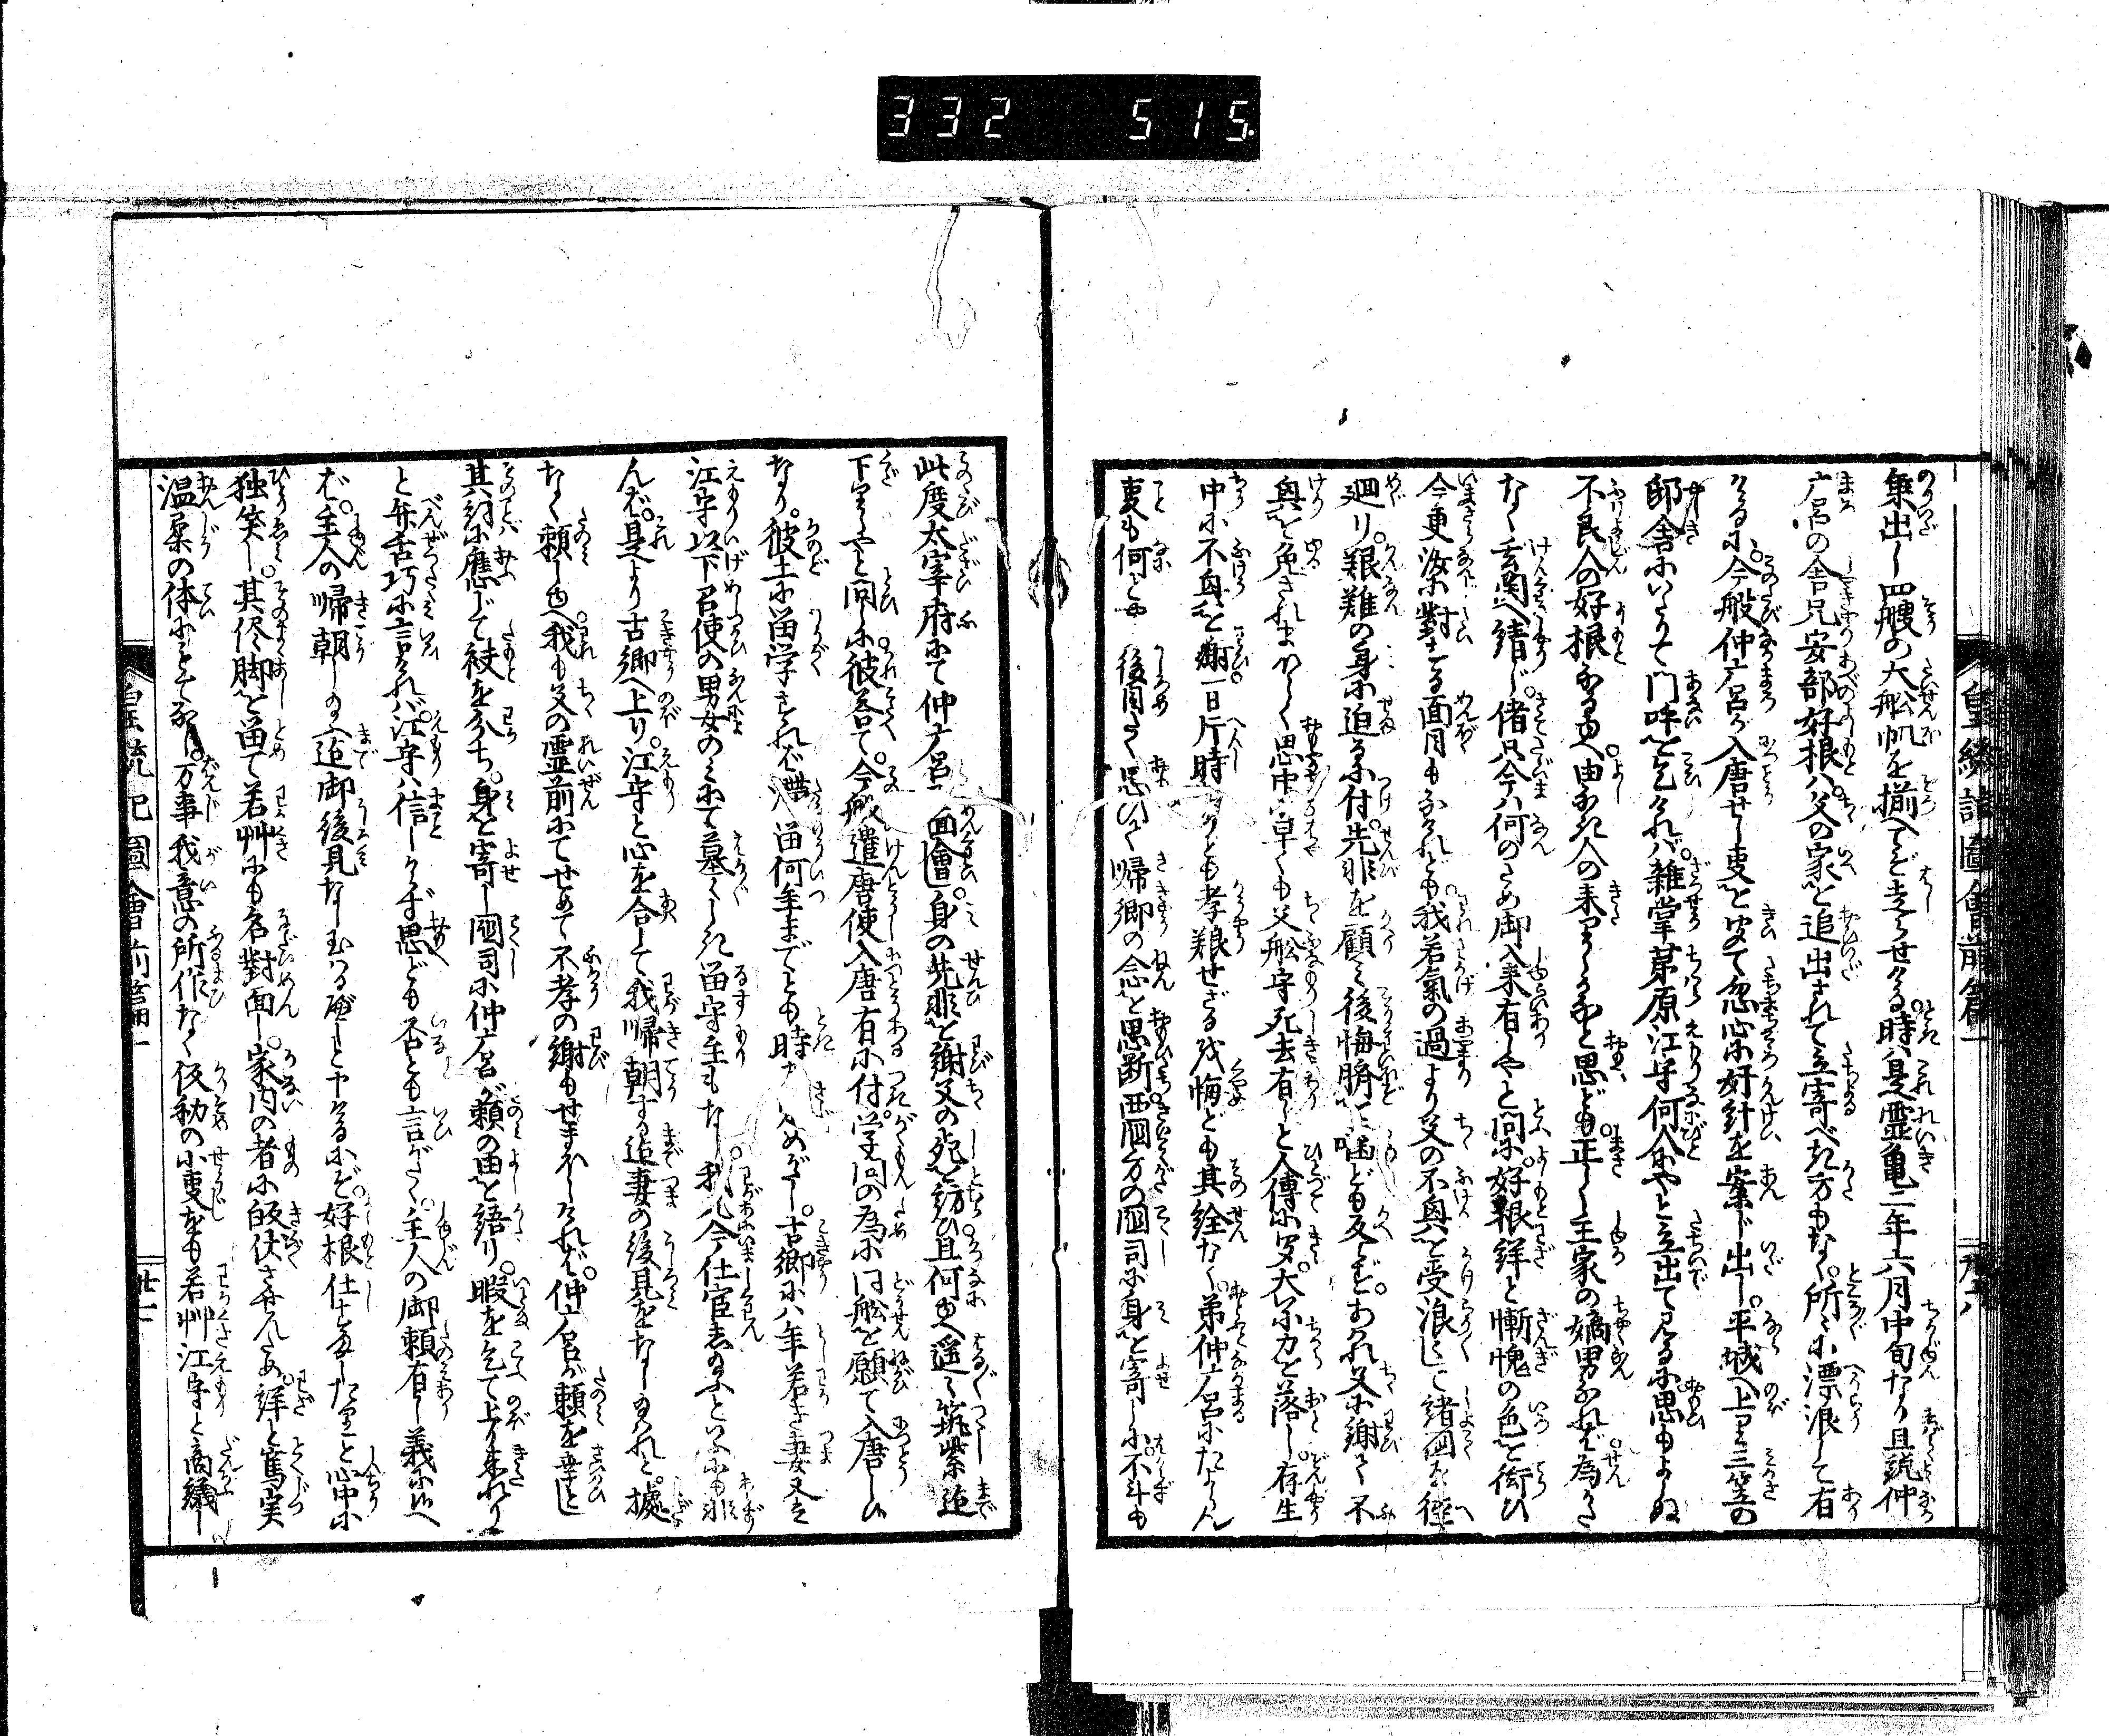 332 515
乗出し四艘の大舩帆を揃へてぞ走らせける時は是霊亀二年六月中旬なり且説仲
麿の舎兄安部好根ハ父の家を追出されて立寄べき方もなく所々に漂浪して有
けるに今般仲麿が入唐せし叓を聞て忽心に奸計を案じ出し平城へ上り三笠の
邸舎にいたりて門吽を乞けれバ雑掌茅原江守何人にやと立出て見るに思もよらぬ
不良人の好根なるゆへ由なき人の来りしかなと思ども正しく主家の嫡男なれば為かた
なく玄関へ請じ偖只今ハ何のため御入来有しやと問に好根詳と慚愧の色を街ひ
今更汝に對する面目もなけれども我若氣の過より父の不興を受浪々して諸国を徑
廻り艱難の身に迫るに付先非を顧み後悔臍を噛ども反らずあはれ父に謝て不
興を免されまほしく思中早くも父舩守死去有しと人傳に聞大に力を落し存生
中に不興を謝一日片時なりとも孝養せざるを悔ども其詮なく弟仲麿にたよらん
叓も何とや後目たく思ひて帰郷の念を思断西国方の国司に身を寄しに不斗も
此度太宰府にて仲麿に面會し身の先非を謝父の死を訪ひ且何ゆへ遥々筑紫迄
下りしやと問しに彼答て今般遣唐使入唐有に付学問の為に同舩を願て入唐しぬ
なり彼土に留学すれば滞留何年までとも時さだめがたし古郷にハ年若き妻又ハ
江守以下召使の男女のミにて墓々しき留守主もなし我兄今仕官し玉ふといふにも非
んば是より古郷へ上り江守と心を合して我帰朝する迄妻の後見をなし玉はれと據
なく頼しゆへ我も父の霊前にてせめて不孝の謝もせまほしければ仲麿が頼を幸と
其詞に應じて袂を分ち身を寄し国司に仲麿が頼の由を語り暇を乞て上り来れり
と弁舌巧に言けれバ江守ハ信しからず思ども否とも言がたく主人の御頼有し義に候へ
ば主人の帰朝し玉ふ迄御後見なし玉はるべしと申けるにぞ好根仕すましたりと心中に
独笑し其侭脚を留て若艸にも名對面し家内の者に皈伏させんため詳と篤実
温柔の体にもてなし万事我意の所作なく仮初の小叓をも若艸江守と商議し
皇統記圖會前篇一